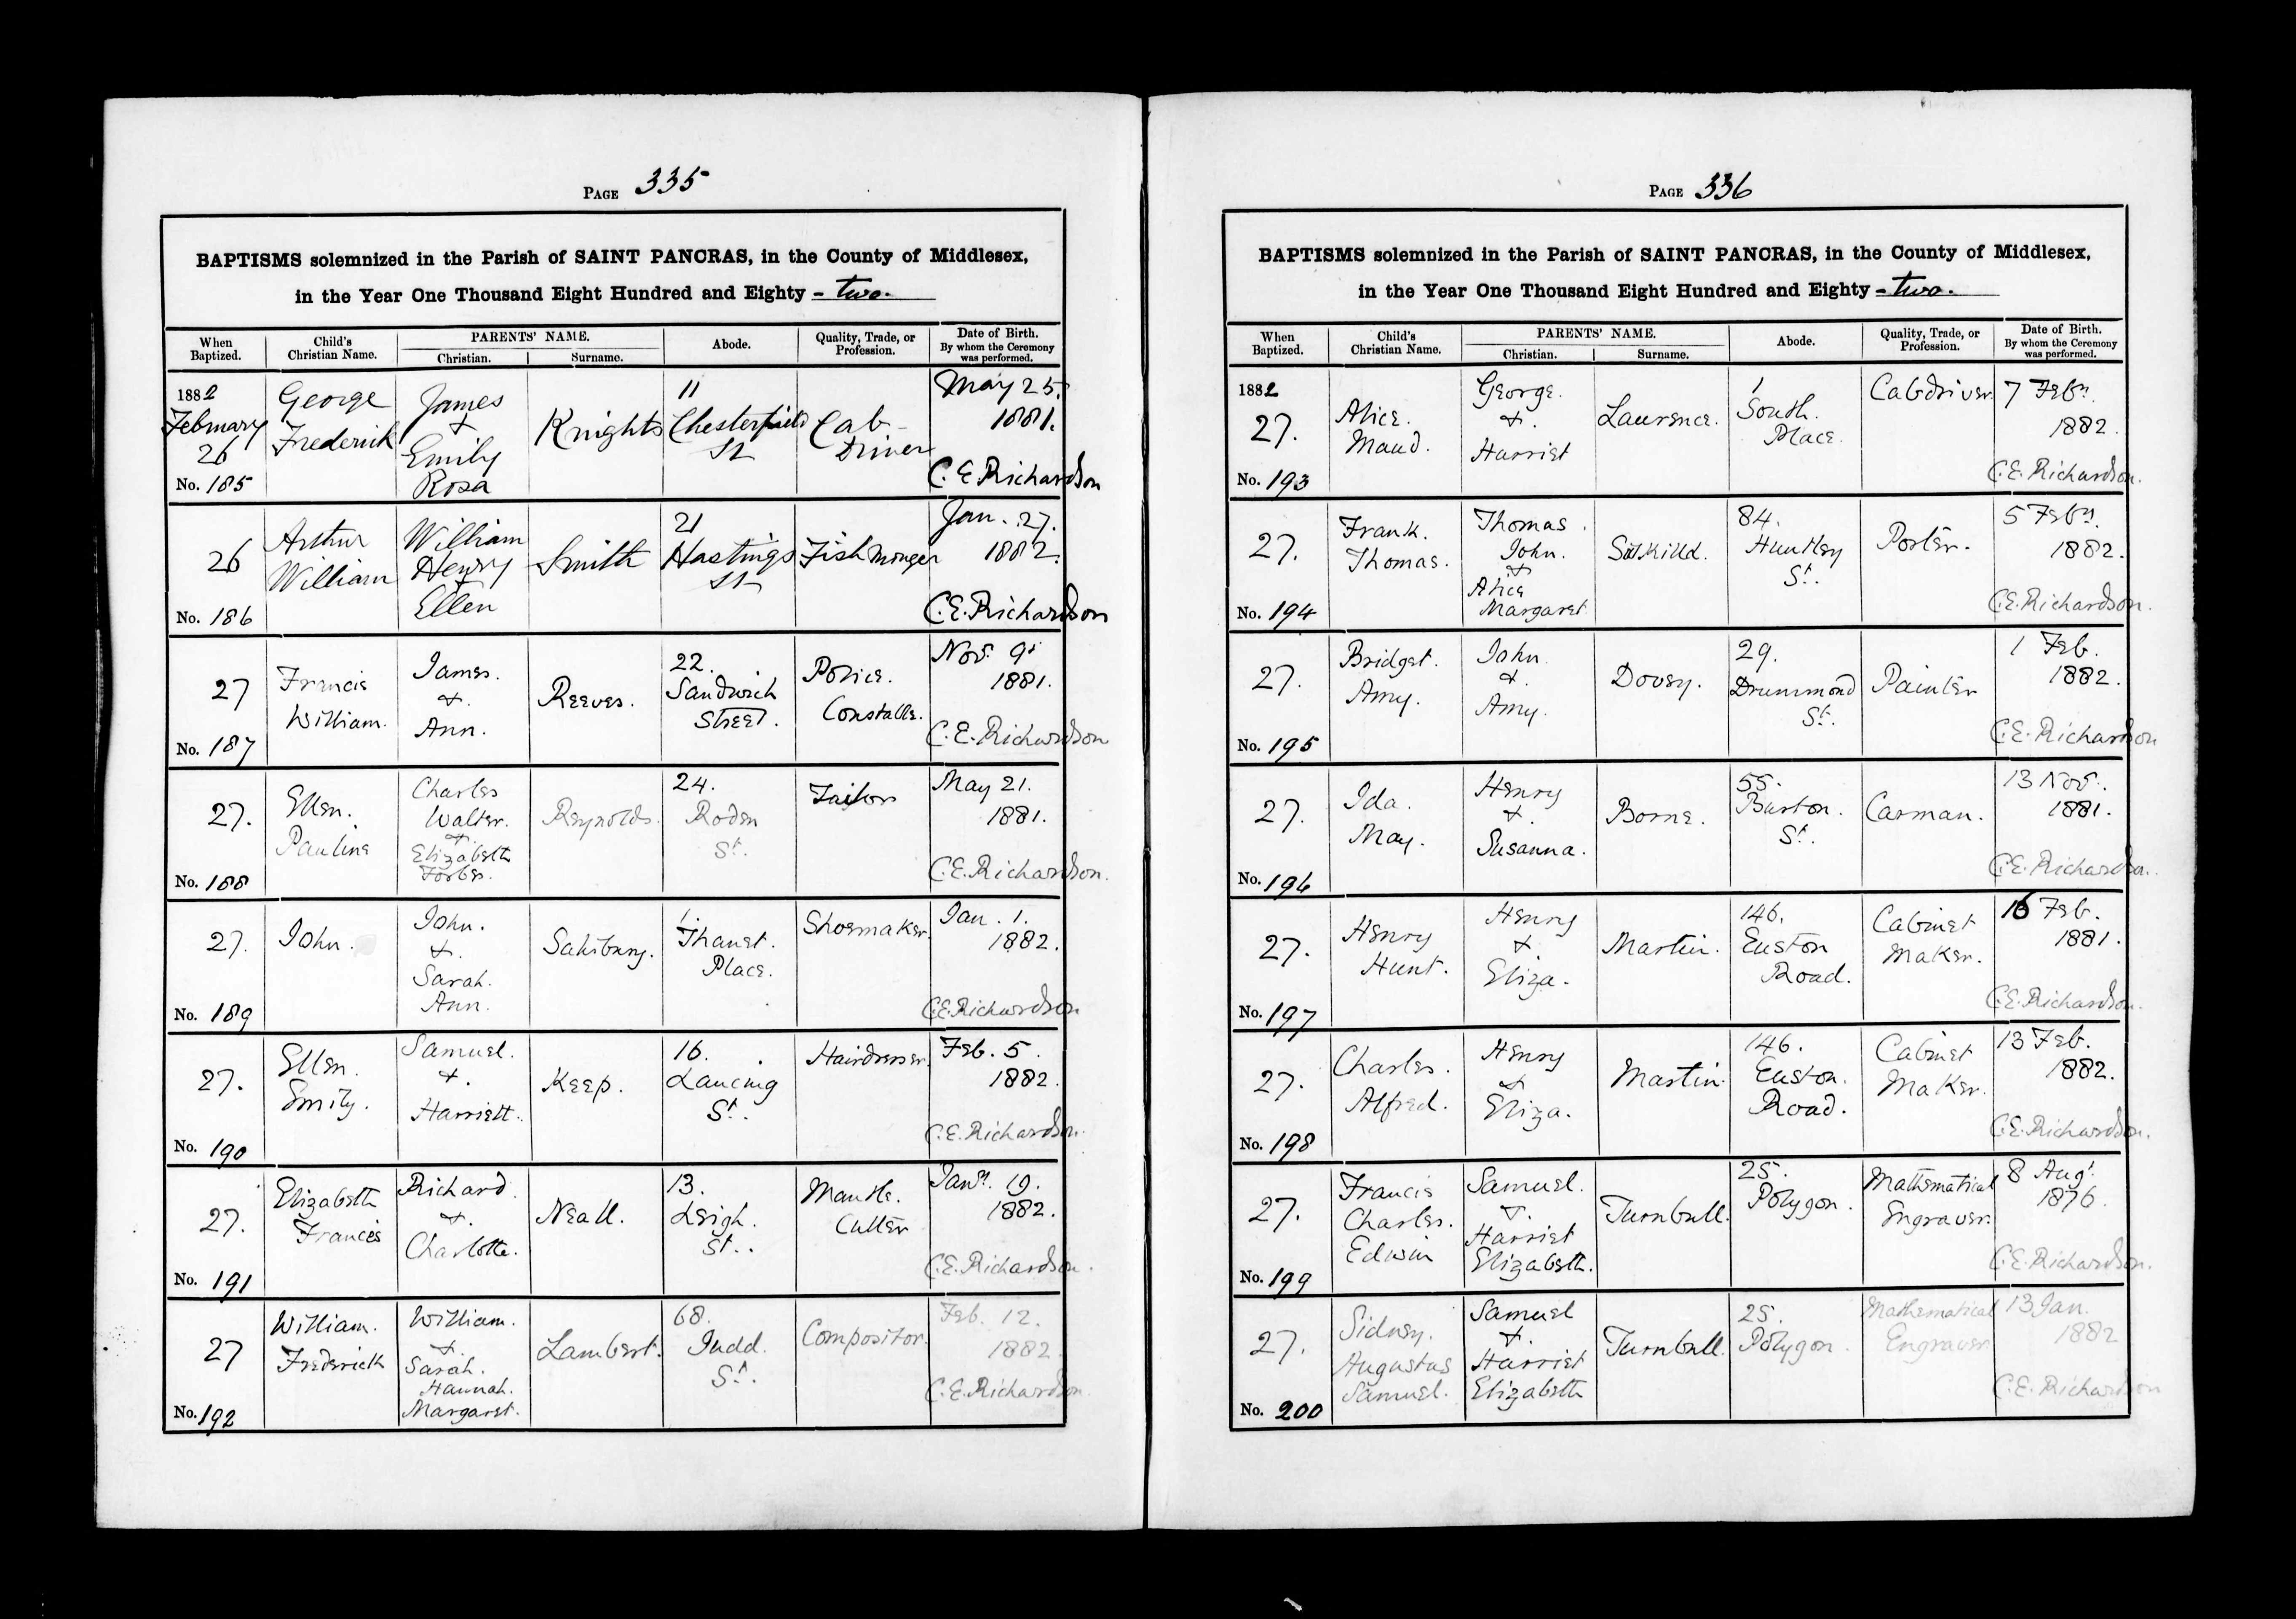 PAGE 335
BAPTISMS solemnized in the Parish of SAINT PANCRAS, in the County of Middlesex,
in the Year One Thousand Eight Hundred and Eighty - two.
When Baptized.
Child's Christian Name.
PARENTS' NAME.
Christian.
Surname.
Abode.
Quality, Trade, or Profession.
Date of Birth.
By whom the Ceremony was performed.
1882
February
26
No. 185
George
Frederick
James
+
Emily
Rosa
Knights
11
Chesterfield
St
Cab-
Driver
May 25.
1881.
C. E. Richardson
26
No. 186
Arthur
William
William
Henry
+
Ellen
Smith
21
Hastings
St
Fishmonger
Jan. 27.
1882.
C. E. Richardson
27
No. 187
Francis
William.
James.
+.
Ann.
Reeves.
22.
Sandwich
Street.
Police.
Constable.
Nov. 9.
1881.
C. E. Richardson
27.
No. 188
Ellen.
Pauline
Charles
Walter.
+.
Elizabeth
Forbes.
Reynolds.
24.
Roden
St.
Tailor
May 21.
1881.
C. E. Richardson.
27.
No. 189
John.
John.
+.
Sarah.
Ann.
Salisbury.
1.
Thanet.
Place.
Shoemaker.
Jan. 1.
1882.
C. E. Richardson
27.
No. 190
Ellen.
Emily.
Samuel.
+.
Harriett.
Keep.
16.
Lancing
St.
Hairdresser.
Feb. 5.
1882.
C. E. Richardson.
27.
No. 191
Elizabeth
Frances
Richard.
+.
Charlotte.
Neall.
13.
Leigh.
St.
Mantle.
Cutter
Jany. 19.
1882.
C. E. Richardson.
27
No. 192
William.
Frederick
William.
+.
Sarah.
Hannah.
Margaret.
Lambert.
68.
Judd.
St.
Compositor.
Feb. 12.
1882.
C. E. Richardson.
PAGE 336
BAPTISMS solemnized in the Parish of SAINT PANCRAS, in the County of Middlesex,
in the Year One Thousand Eight Hundred and Eighty - two.
When Baptized.
Child's Christian Name.
PARENTS' NAME.
Christian.
Surname.
Abode.
Quality, Trade, or Profession.
Date of Birth.
By whom the Ceremony was performed.
1882
27.
No. 193
Alice.
Maud.
George.
+.
Harriet
Laurence.
1
South.
Place.
Cabdriver.
7 Feby.
1882.
C. E. Richardson.
27.
No. 194
Frank.
Thomas.
Thomas.
John.
+
Alice
Margaret
84.
Huntley
St.
Porter.
5 Feby.
1882.
C. E. Richardson.
27.
No. 195
Bridget.
Amy.
John.
+.
Amy.
Dovey.
29.
Drummond
St.
Painter
1 Feb.
1882.
C. E. Richardson
27.
No. 196
Ida.
May.
Henry
+.
Susanna.
Borne.
55.
Burton.
St.
Carman.
13 Nov.
1881.
C. E. Richardson.
27.
No. 197
Henry
Hunt.
Henry
+
Eliza.
Martin.
146.
Euston
Road.
Cabinet
Maker.
16 Feb.
1881.
C. E. Richardson.
27.
No. 198
Charles.
Alfred.
Henry
+
Eliza.
Martin.
146.
Euston.
Road.
Cabinet
Maker.
13 Feb.
1882.
C. E. Richardson.
27.
No. 199
Francis
Charles.
Edwin
Samuel.
+.
Harriet
Elizabeth.
Turnbull.
25.
Polygon.
Mathematical
Engraver.
8 Augt.
1876.
C. E. Richardson.
27.
No. 200
Sidney.
Augustus
Samuel.
Samuel
+.
Harriet
Elizabeth
Turnbull.
25.
Polygon.
Mathematical
Engraver
13 Jan.
1882
C. E. Richardson